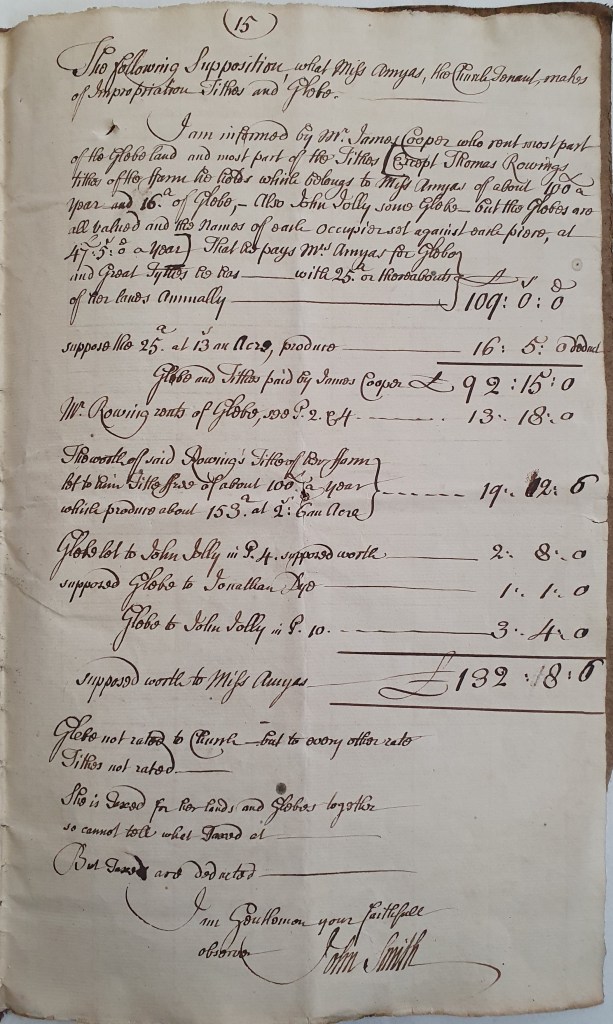 15
The following Supposition, what Miss Amyas, the Church Tenant, makes
of Impropriation Tithes and Glebe.
I am informed by Mr. James Cooper who rent most part
of the Glebe land and most part of the Tithes (Except Thomas Rowings
tithes of the fform he holds which belongs to Miss Amyas of about 100 a
year and 16.a of Glebe,- Also John Jolly some Glebe - but the Glebes are
all valued and the Names of each occupier set against each piece, at
47: 5: 0 a year) That he pays Mrs Amyas for Glebe
and Great Tythes he has — with 25.a or thereabouts
of her lands Annually — £ s d 109: 0: 0
suppose the 25.a at 13s an Acre, produce — 16: 5: 0 deduct
Glebe and Tithes paid by James Cooper £ 92: 15: 0
Mr. Rowing rents of Glebe, see P. 2. & 4 — 13: 18: 0
The worth of said Rowing's Tithe of her fform
let to him Tithe ffree of about 100£ a year
which produce about 153.a at 2s: 6 an Acre - - - - - - 19: 12: 6
Glebe let to John Jolly in P. 4. supposed worth — 2: 8: 0
supposed Glebe to Jonathan Dye — 1: 1: 0
Glebe to John Jolly in P. 10. — 3: 4: 0
supposed worth to Miss Amyas — £ 132: 18: 6
Glebe not rated to Church - but to every other rate
Tithes not rated —
She is Taxed for her lands and Glebes together
so cannot tell what Taxed at —
But Taxes are deducted —
I am Gentlemen your ffaithfull
observer John Smith